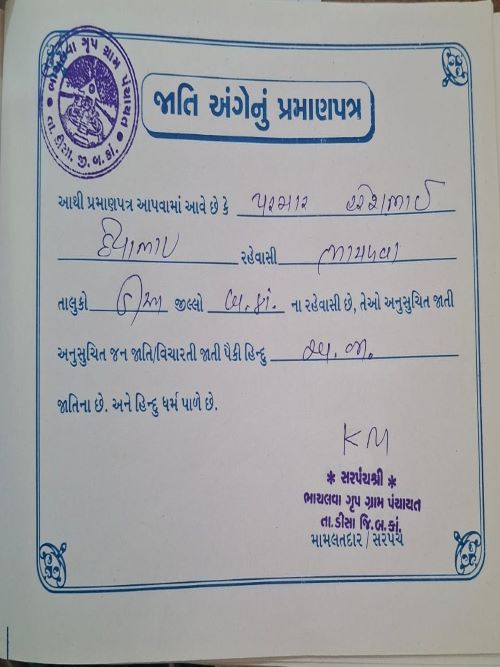 ભાચલવા ગૃપ ગ્રામ પંચાયત
તા. ડીસા. જી. બ. કાં.
જાતિ અંગેનું પ્રમાણપત્ર
આથી પ્રમાણપત્ર આપવામાં આવે છે કે પરમાર હરેશભાઈ
હીરાભાઇ રહેવાસી ભાચલવા
તાલુકો ડીસા જીલ્લો બ.કાં. ના રહેવાસી છે, તેઓ અનુસુચિત જાતી
અનુસુચિત જન જાતિ/વિચારતી જાતી પૈકી હિન્દુ અ.જા.
જાતિના છે. અને હિન્દુ ધર્મ પાળે છે.
KM
* સરપંચશ્રી *
ભાચલવા ગૃપ ગ્રામ પંચાયત
તા.ડીસા જિ.બ.કાં.
મામલતદાર / સરપંચ